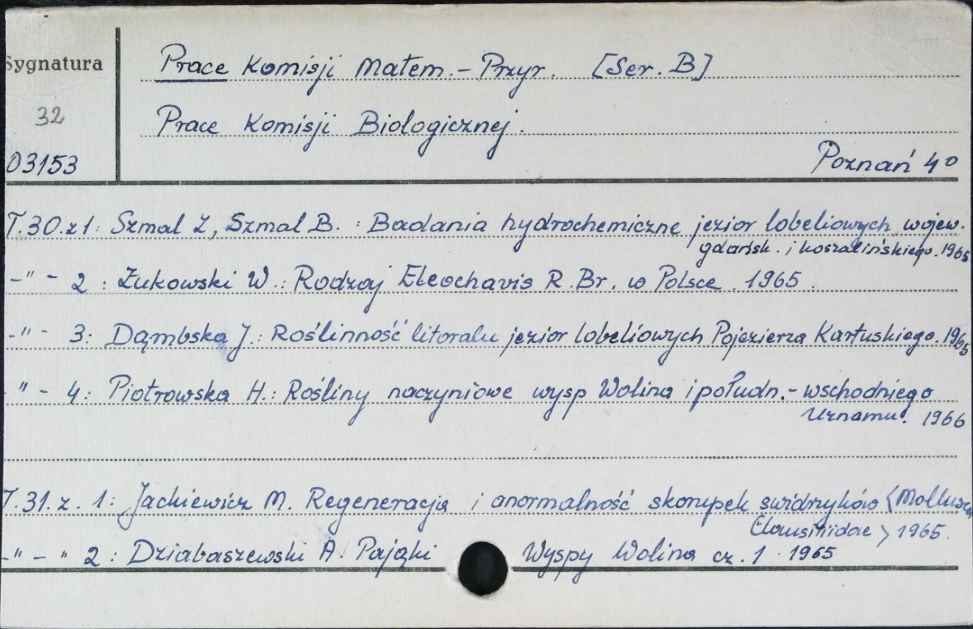 Sygnatura
32
03153
Prace Komisji Matem.-Przyr. [Ser. B]
Prace Komisji Biologicznej.
Poznań 4°
T.30.z1: Szmal Z, Szmal B. : Badania hydrochemiczne jezior lobeliowych wojew.
gdańsk. i koszalińskiego. 1965
-"- 2 : Żukowski W.: Rodzaj Eleocharis R.Br. w Polsce. 1965.
-"- 3: Dąmbska J.: Roślinność litoralu jezior lobeliowych Pojezierza Kartuskiego. 1965
"- 4: Piotrowska H.: Rośliny naczyniowe wysp Wolina i połudn.-wschodniego
Uznamu. 1966
T.31.z. 1: Jackiewicz M. Regeneracja i anormalność skorupek świdrzyków (Mollusca
Clausiliidae) 1965.
-"-" 2: Dziabaszewski A. Pająki Wyspy Wolina cz. 1. 1965